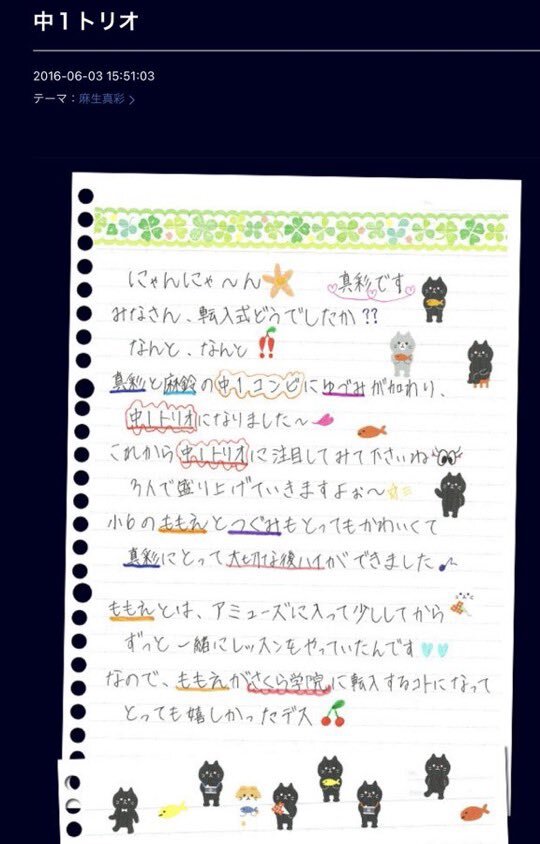 中1トリオ
2016-06-03 15:51:03
テーマ：麻生真彩 >
にゃんにゃ〜ん 真彩です
みなさん、転入式どうでしたか??
なんと、なんと!!
真彩と麻鈴の中1コンビにゆづみが加わり、
中1トリオになりました〜
これから中1トリオに注目してみて下さいね
3人で盛り上げていきますよぉ〜
小6のももえとつぐみもとってもかわいくて
真彩にとって大切な後ハイができました♪
ももえとは、アミューズに入って少ししてから
ずっと一緒にレッスンをやっていたんです
なので、ももえがさくら学院に転入するコトになって
とっても嬉しかったデス